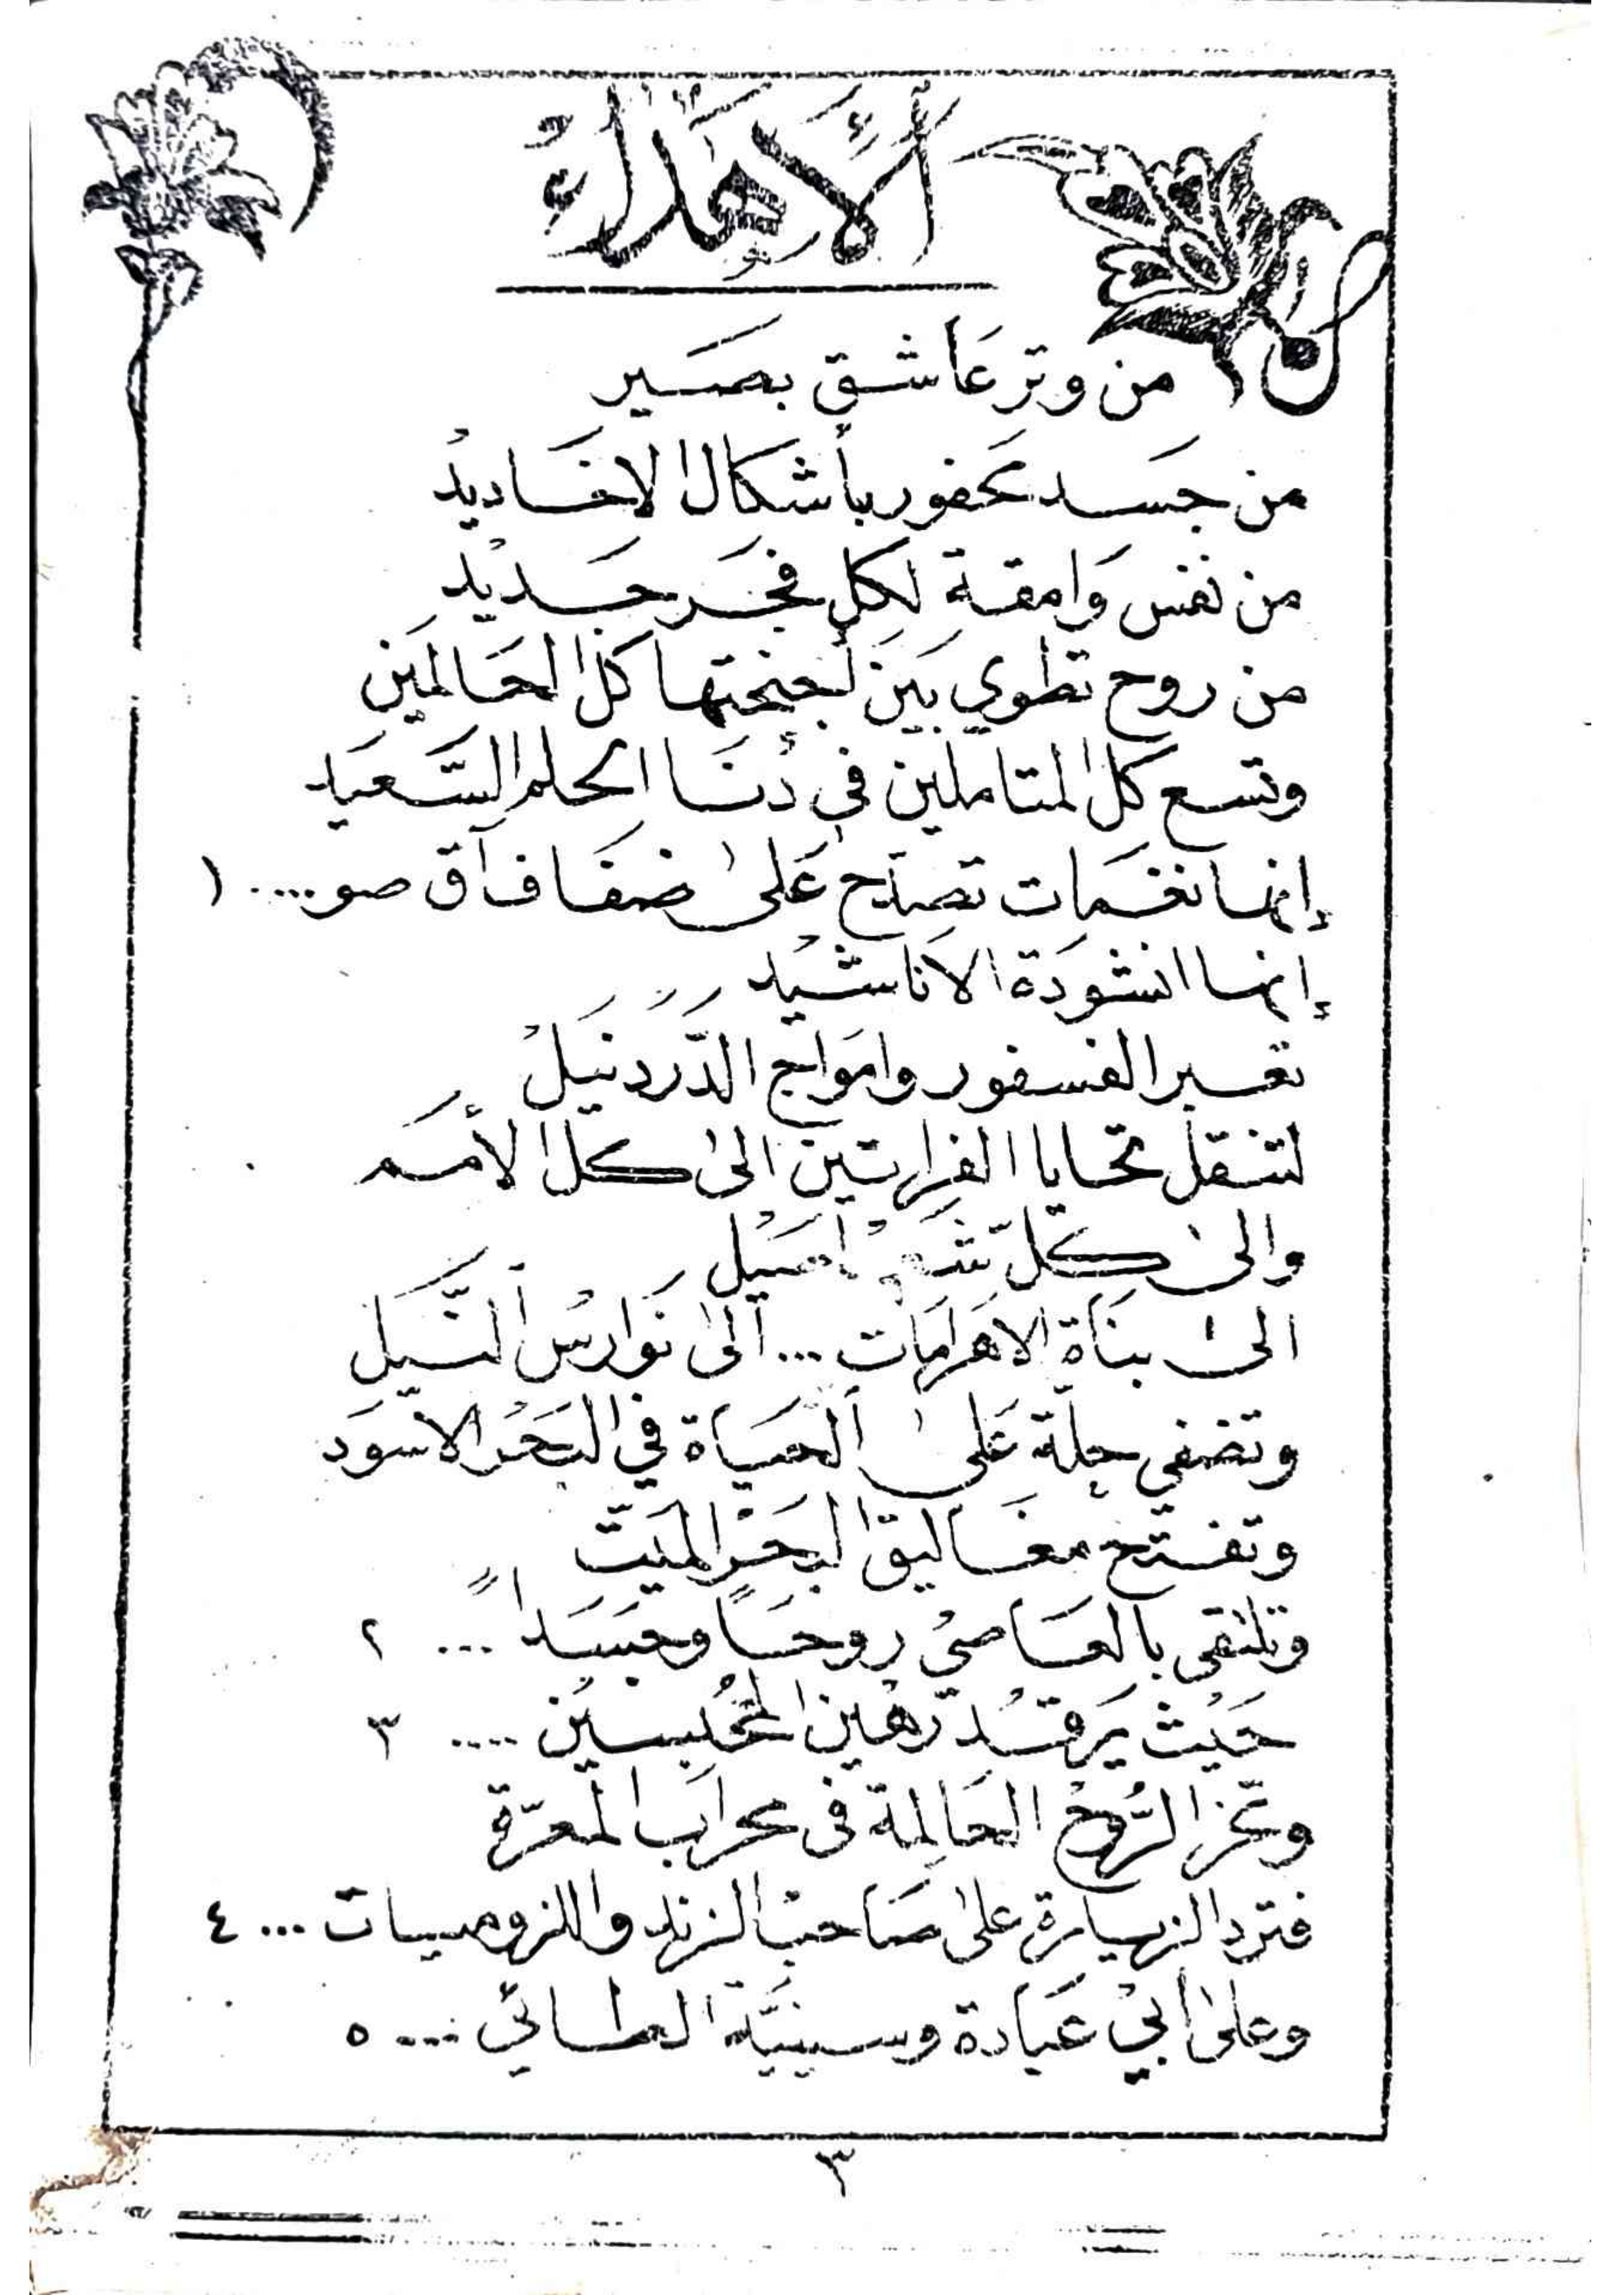 الأهداء
من وتر عاشق بصير
من جسد محفور بأشكال الاخاديد
من نفس وامقة لكل فجر جديد
من روح تطوي بين أجنحتها كل الحالمين
وتسع كل المتاملين في دنا الحلم السعيد
إنها نغمات تصدح على ضفاف آق صو .... ١
إنها انشودة الاناشيد
تعبر الفسفور وامواج الدردنيل
لتنقل تحايا الفراتين الى كل الأمم
والى كل أصيل
الى بناة الاهرامات ... الى نوارس النيل
وتضفي حلة على الحياة في البحر الاسود
وتفتح مغاليق البحر الميت
وتلتقي بالعاصي روحاً وجسداً ... ٢
حيث يرقد رهين المحبسين .... ٣
وتخز الروح الحالمة في محراب المعرة
فترد الزيارة على صاحب الزند واللزوميات ... ٤
وعلى أبي عبادة وسينية الطائي .... ٥
٣